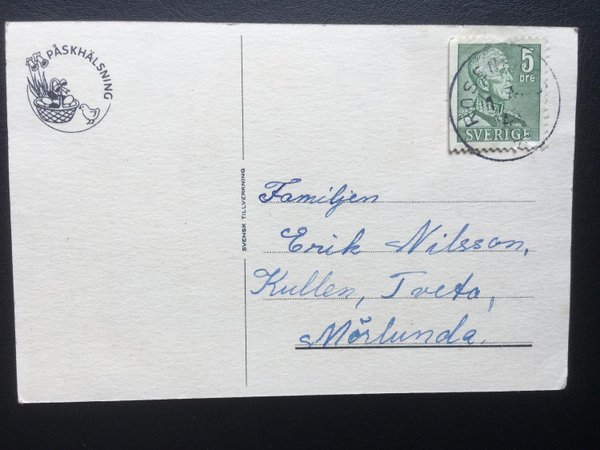 PÅSKHÄLSNING
5
öre
SVERIGE
SVENSK TILLVERKNING
Familjen
Erik Nilsson,
Kullen, Tveta,
Mörlunda.